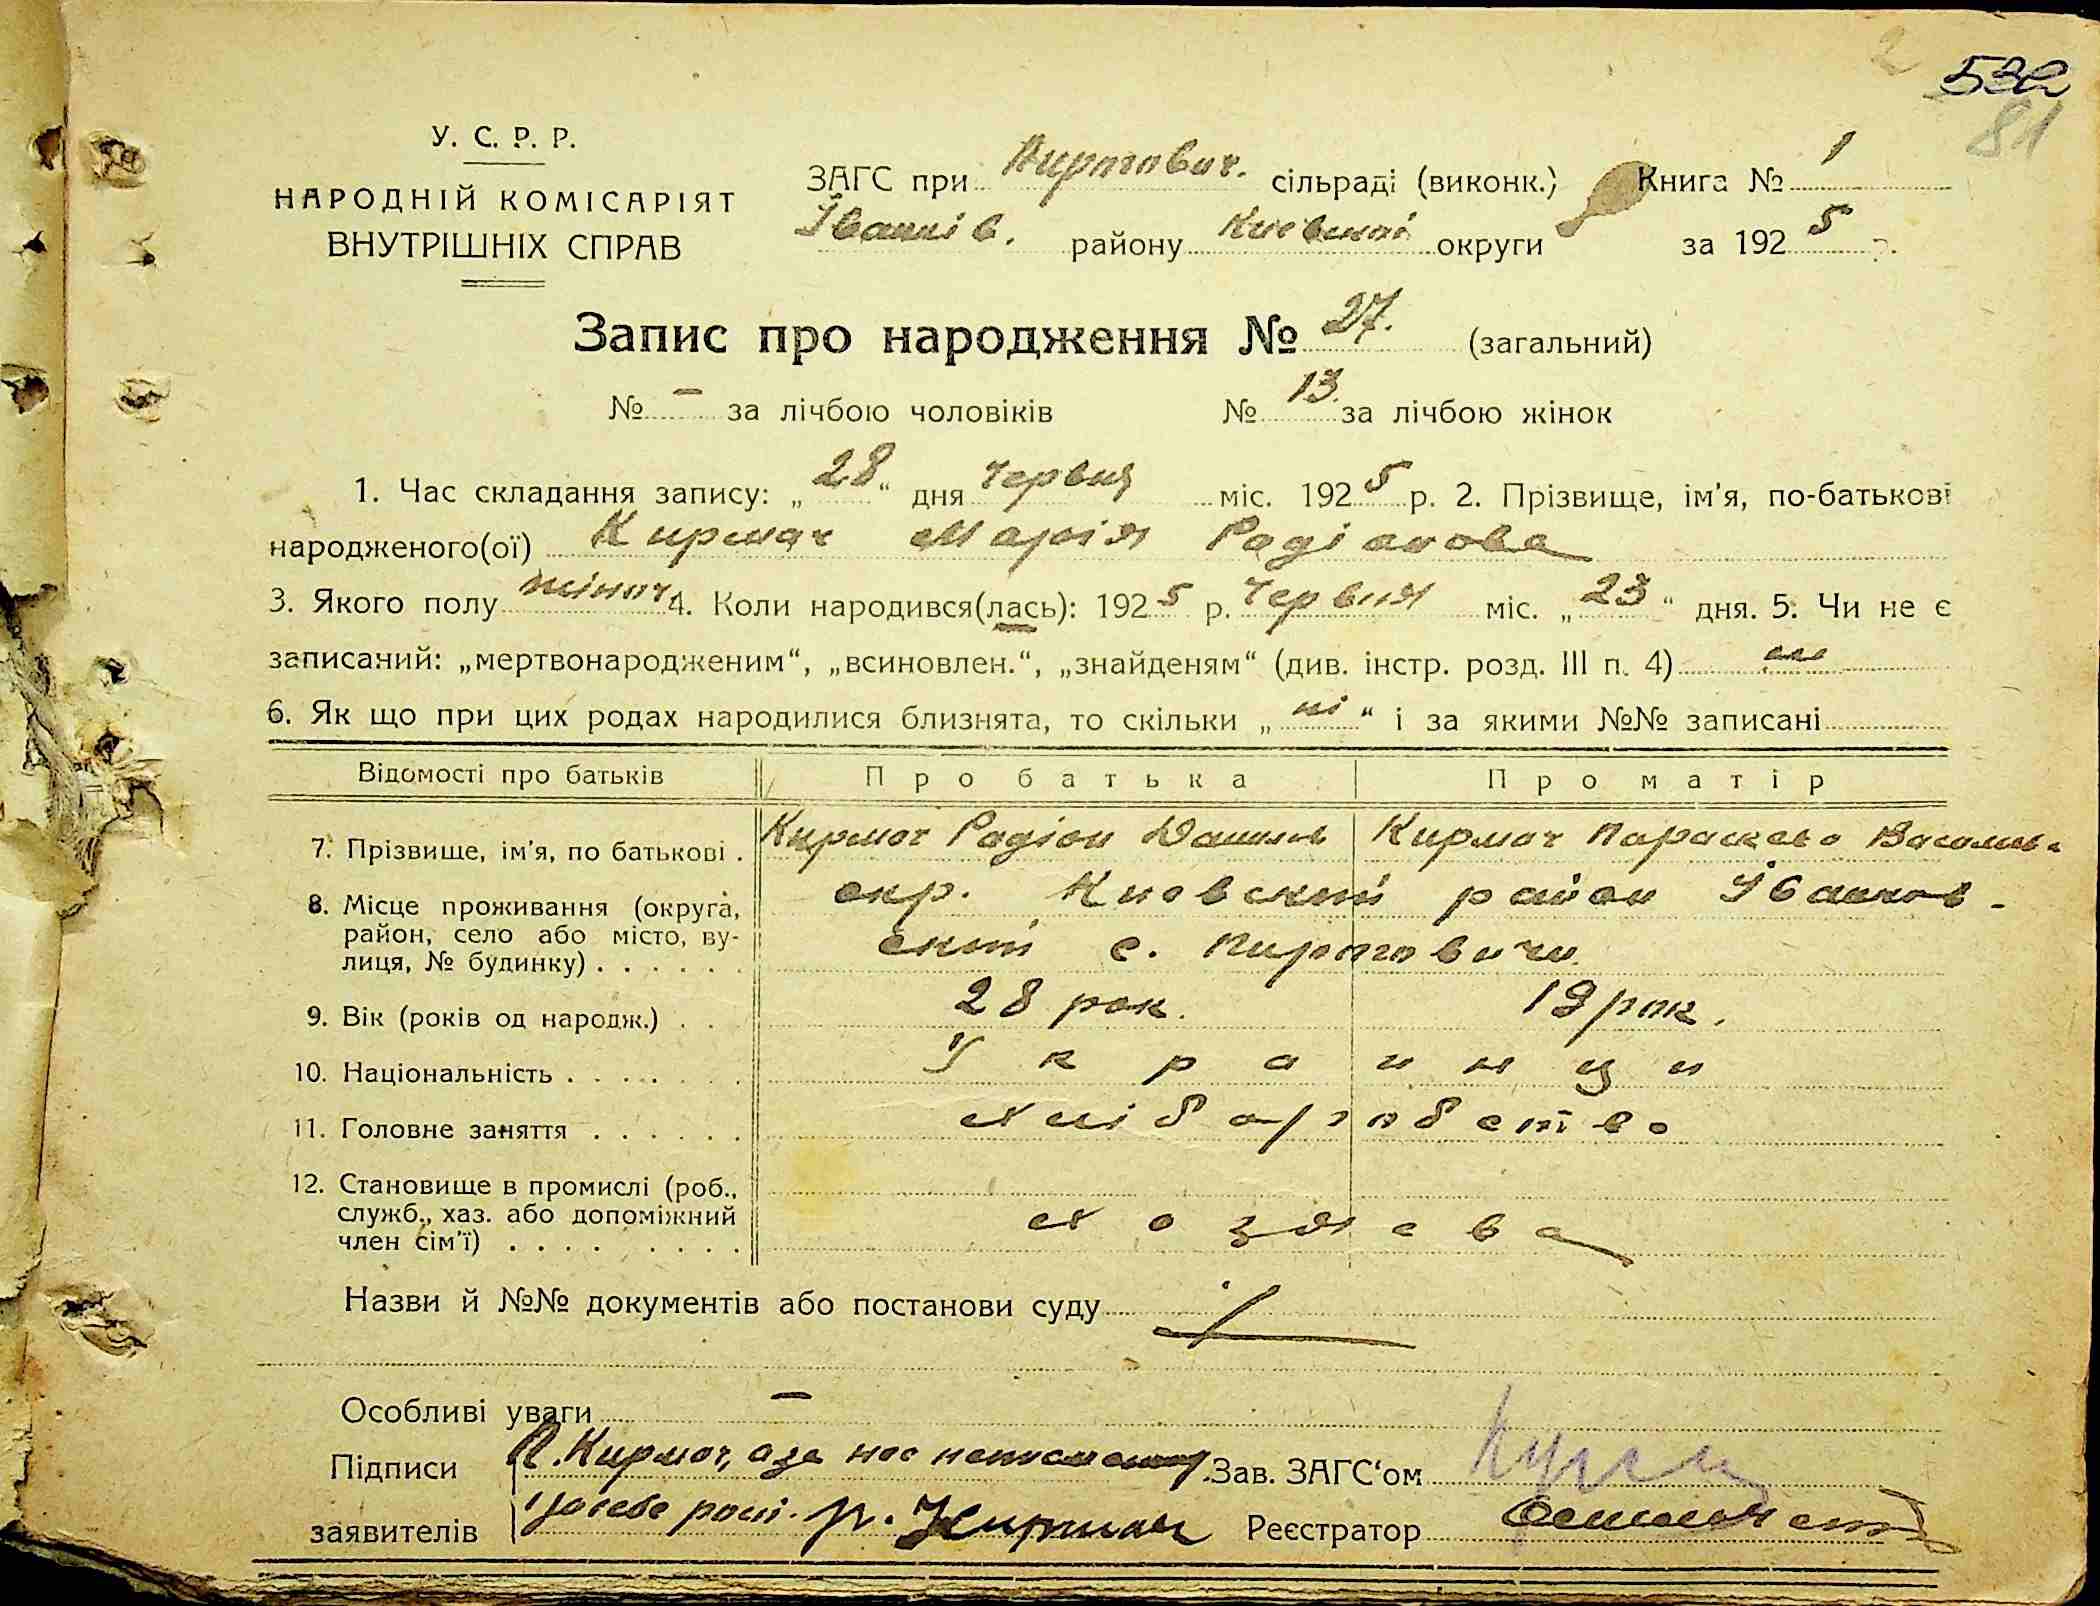 532
81
У. С. Р. Р.
НАРОДНІЙ КОМІСАРІЯТ
ВНУТРІШНІХ СПРАВ
ЗАГС при Пиртович. сільраді (виконк.) Книга № 1
Іванків. району Київської округи за 1925 р.
Запис про народження № 27. (загальний)
№ – за лічбою чоловіків № 13. за лічбою жінок
1. Час складання запису: „28“ дня червня міс. 1925 р. 2. Прізвище, ім'я, по-батькові
народженого(ої) Кирмач Марія Радіонова
3. Якого полу жіноч. 4. Коли народився(лась): 1925 р. Червня міс. „23“ дня. 5. Чи не є
записаний: „мертвонародженим“, „всиновлен.“, „знайденям“ (див. інстр. розд. III п. 4)
6. Як що при цих родах народилися близнята, то скільки „ні“ і за якими №№ записані
Відомості про батьків Про батька Про матір
7. Прізвище, ім'я, по батькові . Кирмач Радіон Данилов Кирмач Параскева Васильев.
8. Місце проживання (округа, окр. Киевский район Іванков-
район, село або місто, ву- ский с. Пиртовичи.
лиця, № будинку) . . . . . .
9. Вік (років од народж.) . . 28 рок. 19 рок.
10. Національність . . . . . . . Украинци
11. Головне заняття . . . . . . хліборобство
12. Становище в промислі (роб.,
служб., хаз. або допоміжний хозяева
член сім'ї) . . . . . . . .
Назви й №№ документів або постанови суду
Особливі уваги –
Підписи П. Кирмач, а за нее неписменну Зав. ЗАГС'ом
заявителів і за себе росп. Р. Кирмач Реєстратор